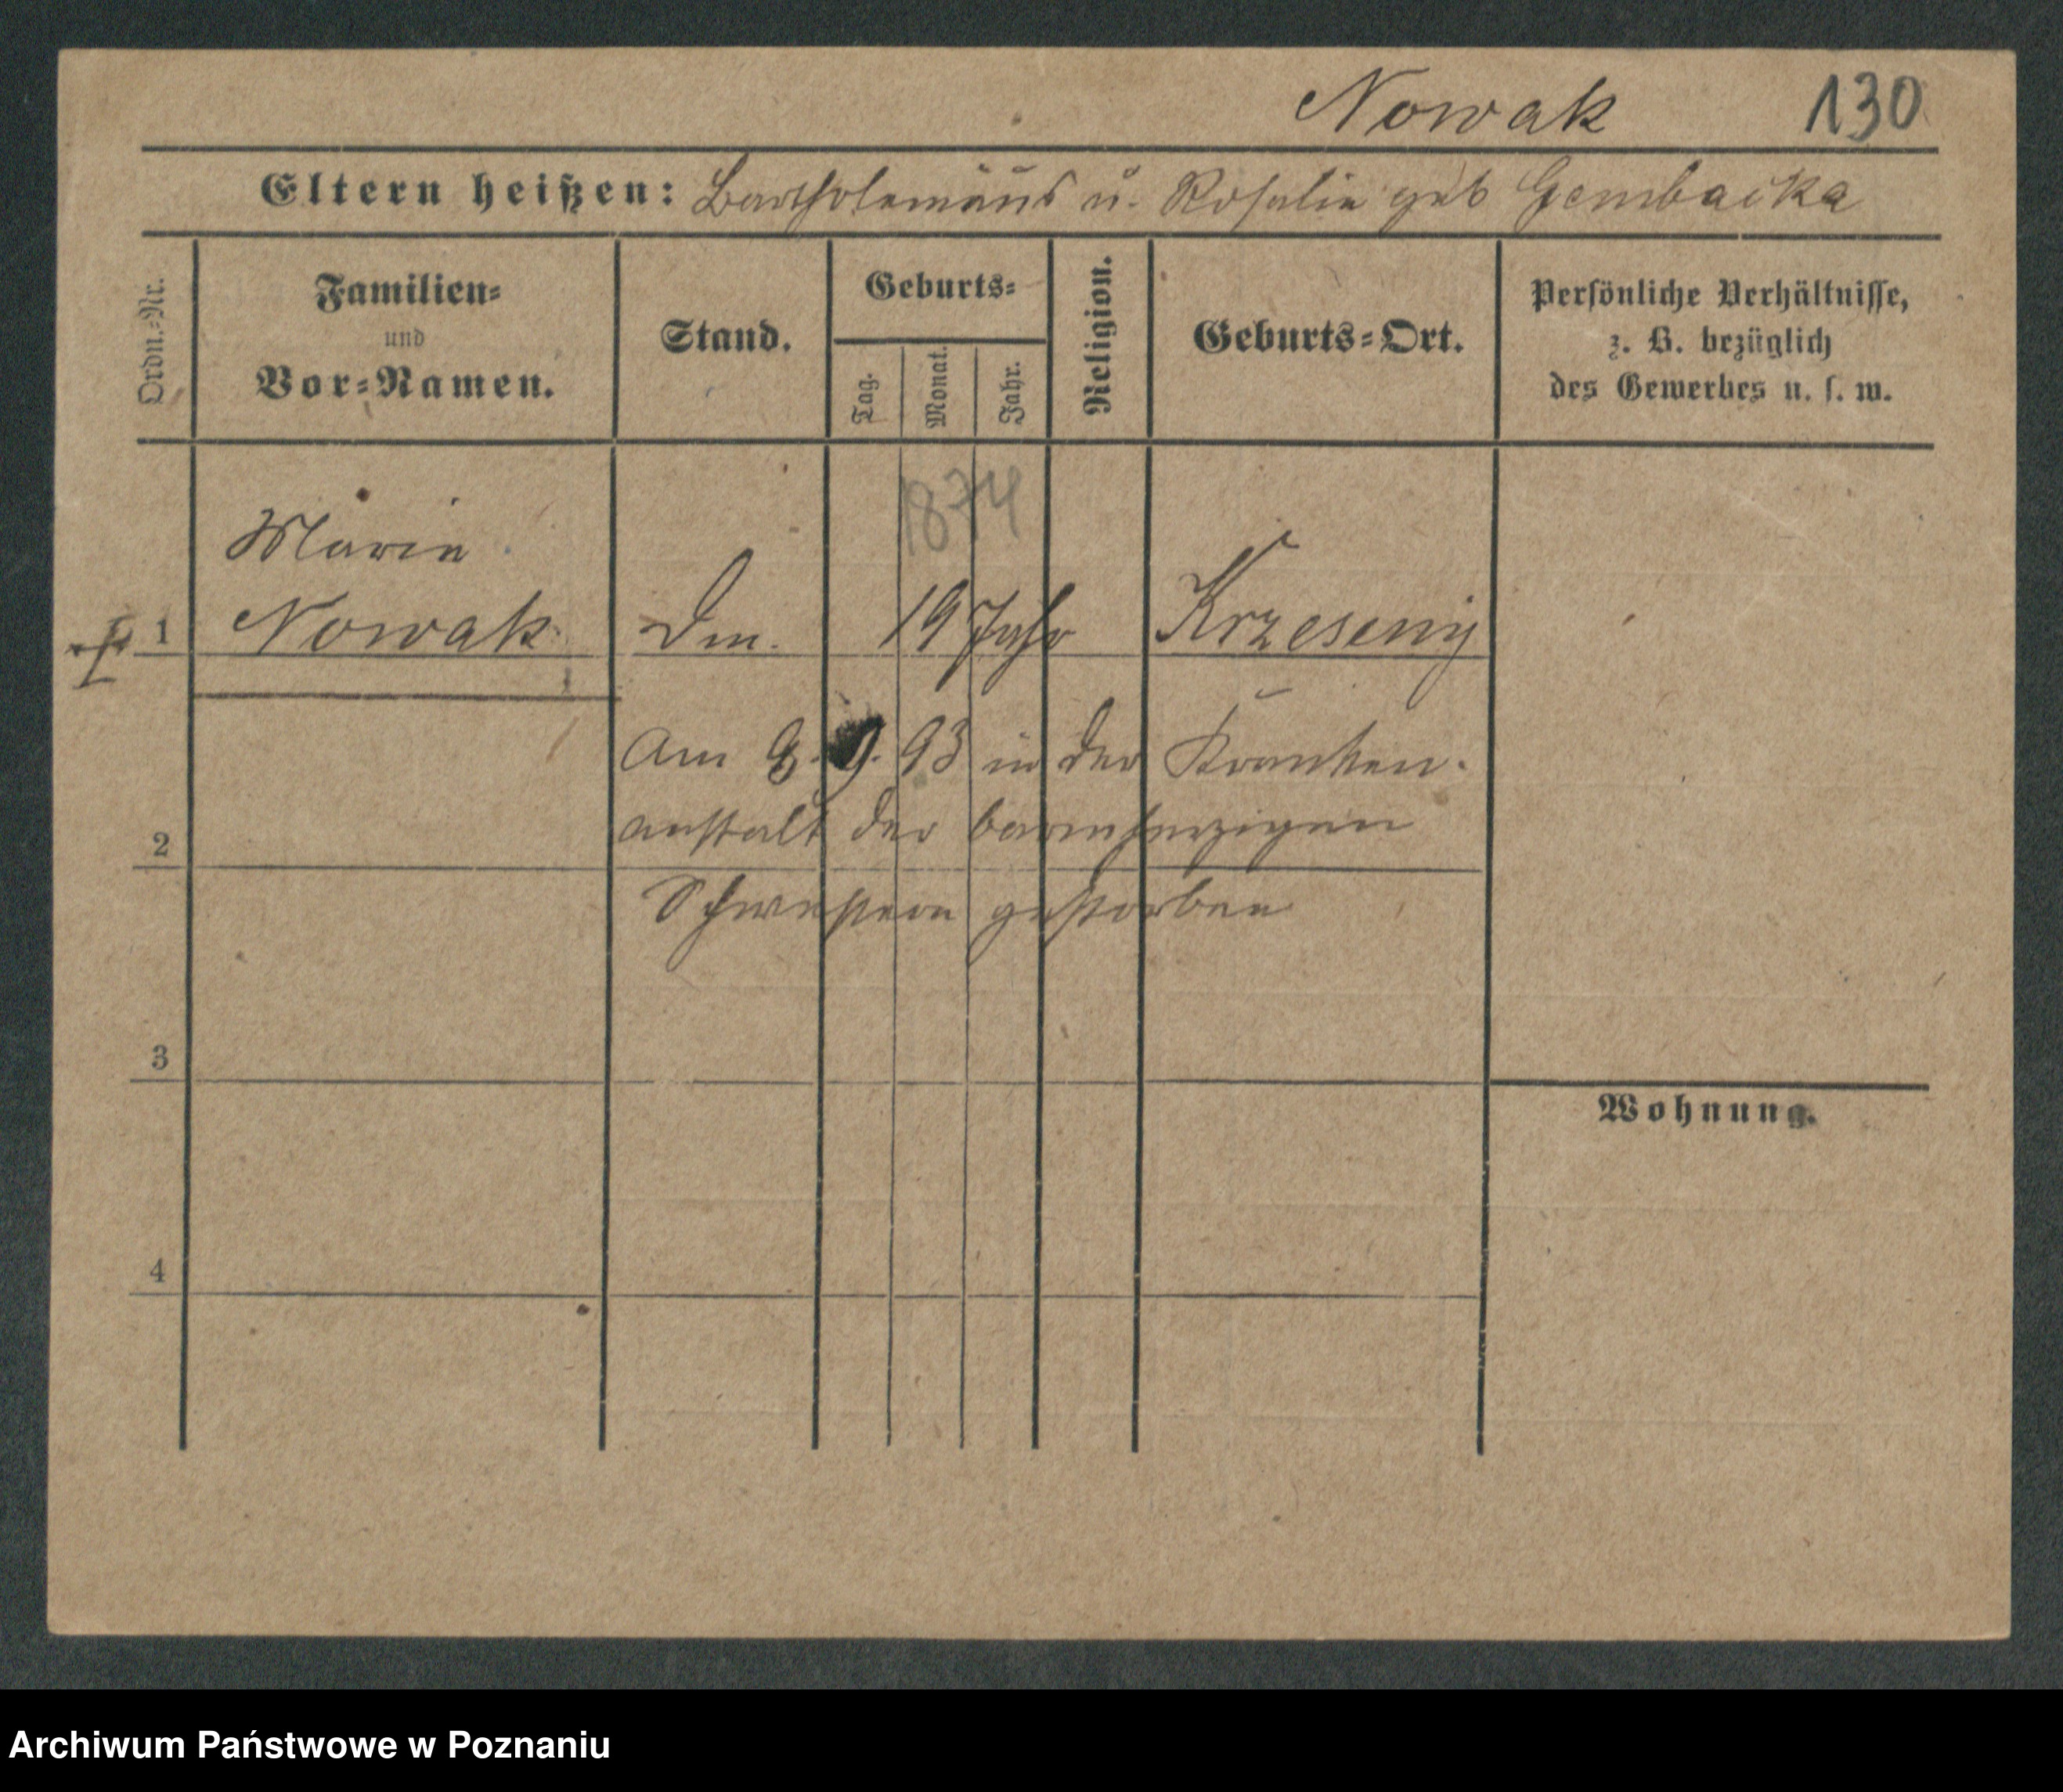 Nowak 130
Eltern heißen: Bartholomäus u. Rosalie geb Gembacka
Ordn.-Nr.
Familien-
und
Vor-Namen.
Stand.
Geburts-
Tag.
Monat.
Jahr.
Religion.
Geburts-Ort.
Persönliche Verhältnisse,
z. B. bezüglich
des Gewerbes u. s. w.
1874
Marie
1 Nowak 19 Jahr Krzeseniy
Am 9. 93 in der Kranken-
anstalt der barmherzigen
2
Schwestern gestorben
3
Wohnung.
4
Archiwum Państwowe w Poznaniu